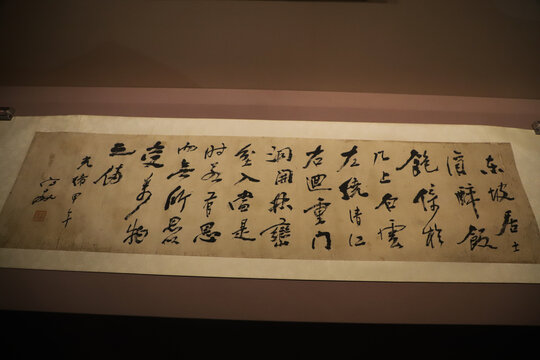 東坡居士
酒醉飯
飽倚於
几上白雲
左繞清江
右迴重門
洞開林巒
坌入當是
時若有思
而無所思
受萬物
之備
光緒甲午